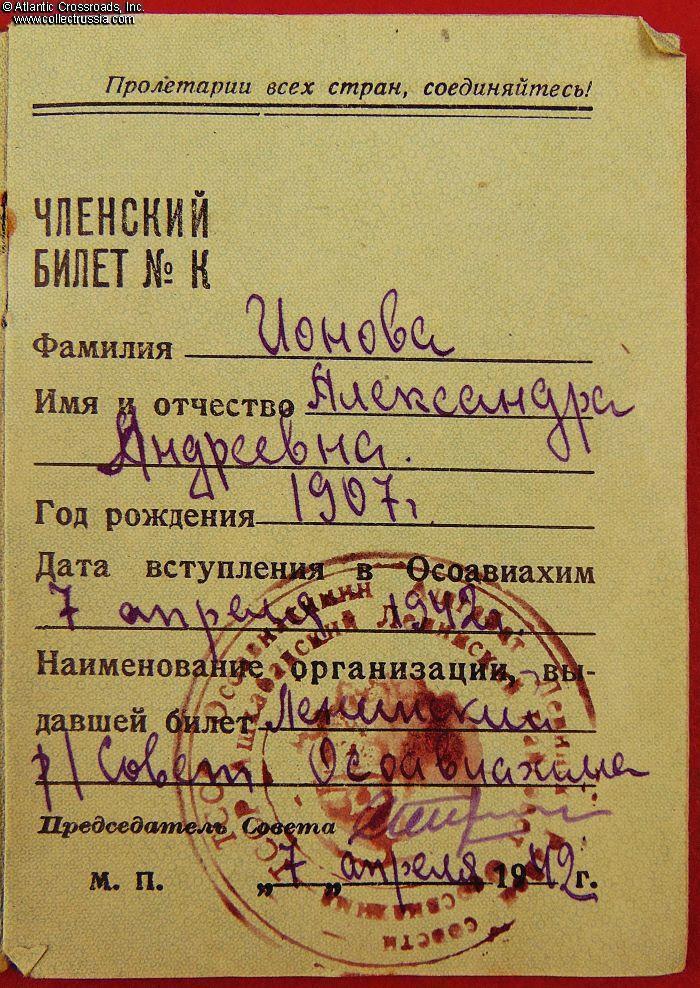 © Atlantic Crossroads, Inc.
www.collectrussia.com
Пролетарии всех стран, соединяйтесь!
ЧЛЕНСКИЙ
БИЛЕТ № К
Фамилия Ионова
Имя и отчество Александра
Андреевна.
Год рождения 1907 г.
Дата вступления в Осоавиахим
7 апреля 1942 г.
Наименование организации, вы-
давшей билет Ленинский
р/Совет Осоавиахима
Председатель Совета
М. П. „7„ апреля 1942 г.
Ашхабадский Ленинский